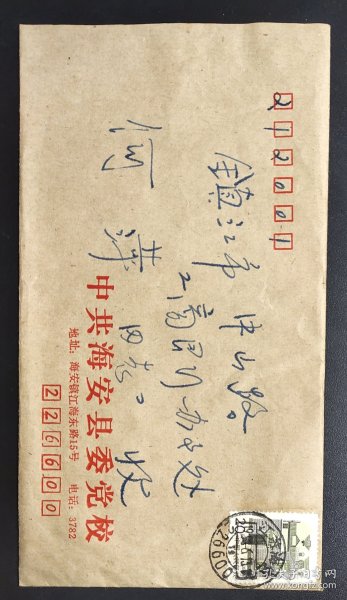 212001
镇江市 中山路
工商银行办事处
何萍 同志 收
中共海安县委党校
地址：海安镇江海东路15号 电话：3782
226600